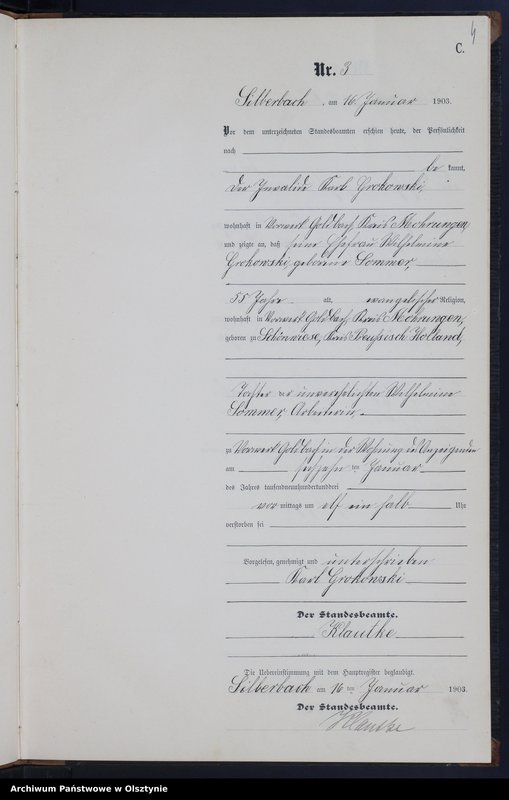 4
C.
Nr. 3
Silberbach, am 16. Januar 1903.
Vor dem unterzeichneten Standesbeamten erschien heute, der Persönlichkeit
nach
be kannt,
der Invalide Karl Grokowski,
wohnhaft in Vorwerk Goldbach, Kreis Mohrungen,
und zeigte an, daß seine Ehefrau Wilhelmine
Grokowski, geborene Sommer,
55 Jahre alt, evangelischer Religion,
wohnhaft in Vorwerk Goldbach, Kreis Mohrungen,
geboren zu Schönwiese, Kreis Preußisch Holland,
Tochter der unverehelichten Wilhelmine
Sommer, Arbeiterin,
zu Vorwerk Goldbach in der Wohnung des Anzeigenden
am sechzehn ten Januar
des Jahres tausendneunhundertunddrei
vor mittags um elf ein halb Uhr
verstorben sei
Vorgelesen, genehmigt und unterschrieben
Karl Grokowski
Der Standesbeamte.
Klautke
Die Uebereinstimmung mit dem Hauptregister beglaubigt.
Silberbach am 16 ten Januar 1903.
Der Standesbeamte.
Klautke
Archiwum Państwowe w Olsztynie